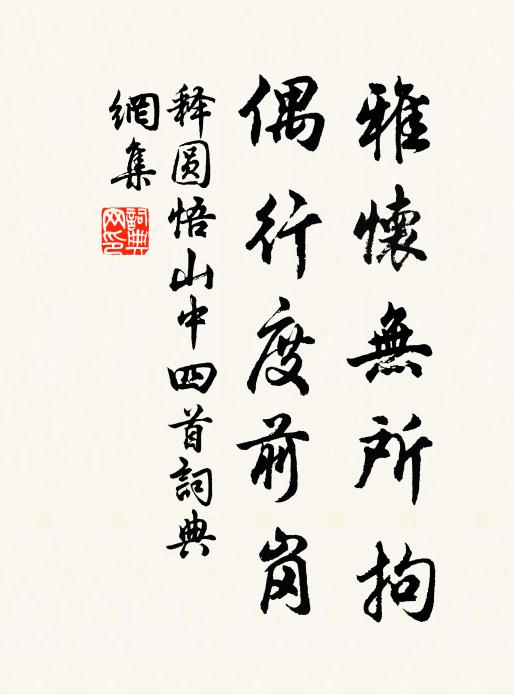 雅懷無所拘
偶行度前岗
释圆悟山中四首詞典
網集
詞典
网印